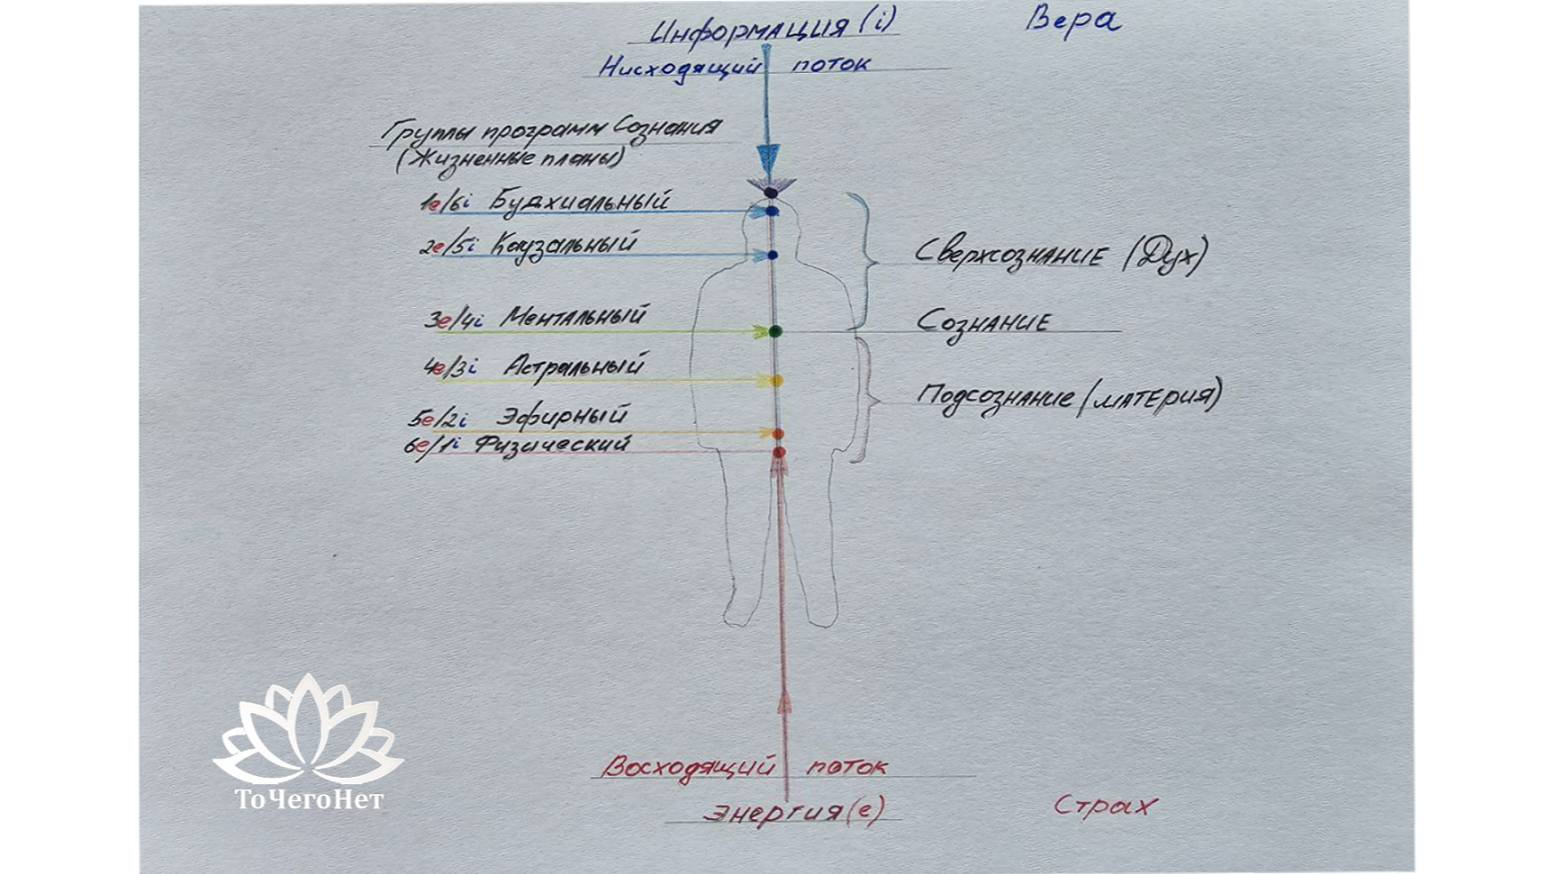 Информация (i)
Вера
Нисходящий поток
Группы программ Сознания
(Жизненные планы)
1е/6i Будхиальный
2е/5i Каузальный
Сверхсознание (Дух)
3е/4i Ментальный
Сознание
4е/3i Астральный
Подсознание (материя)
5е/2i Эфирный
6е/1i Физический
ТоЧегоНет
Восходящий поток
Энергия (е)
Страх